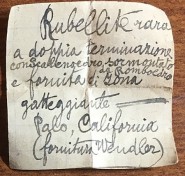 Rubellite rara
a doppia terminazione
con scalenoedro, sormontato
da Romboedro
e fornita di zona
gatteggiante
Palo, California
(fornitura Wendler)